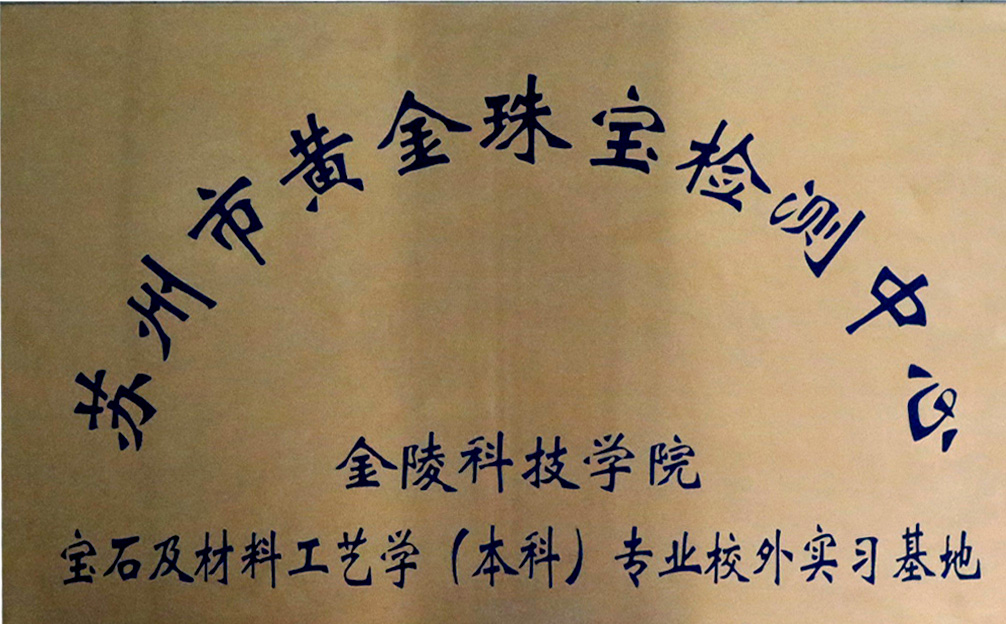 苏州市黄金珠宝检测中心
金陵科技学院
宝石及材料工艺学（本科）专业校外实习基地